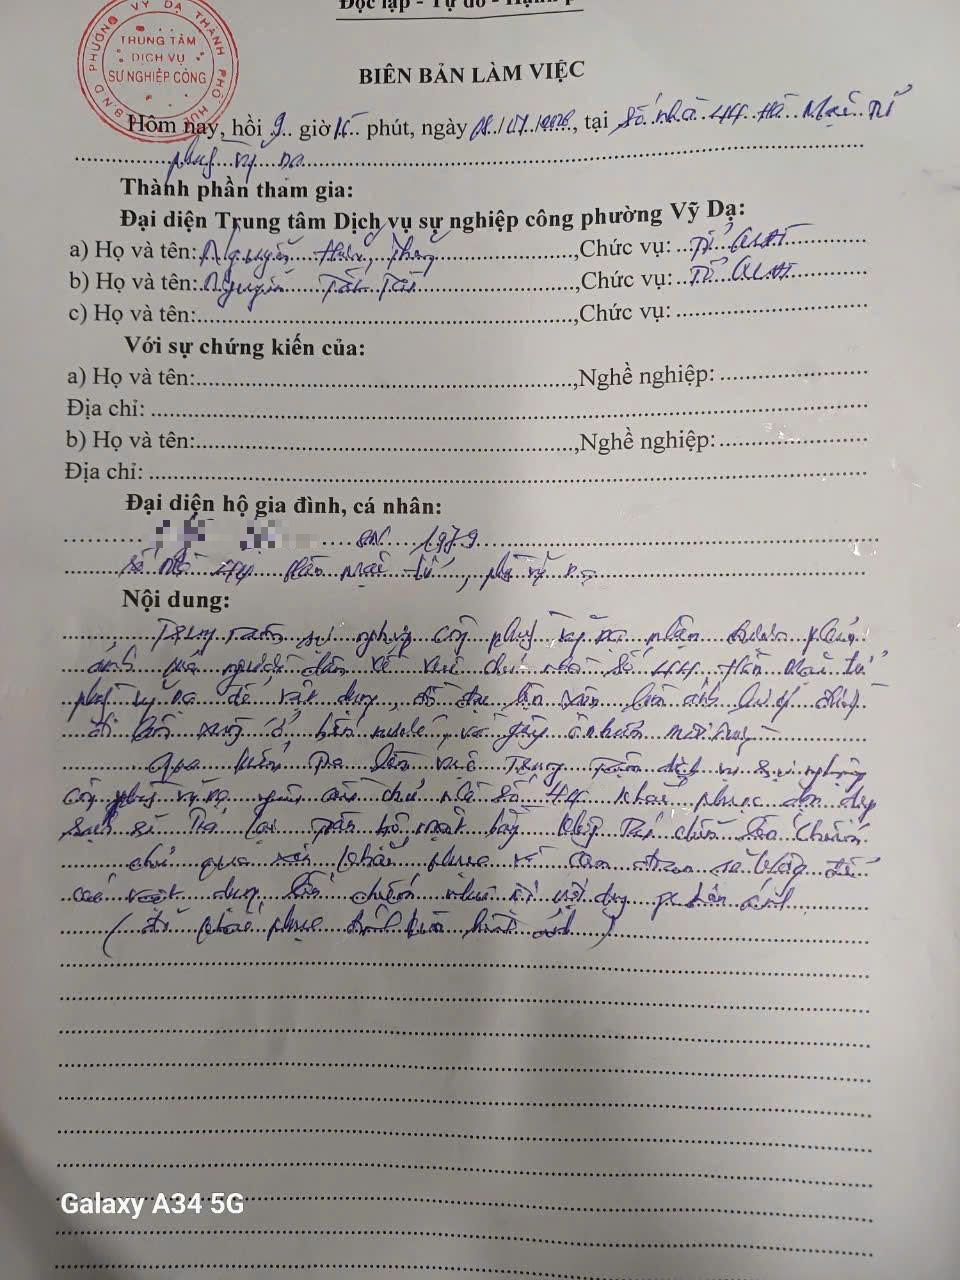 Độc lập - Tự do - Hạnh p
PHƯỜNG VỸ DẠ THÀNH PHỐ HUẾ
U.B.N.D
TRUNG TÂM
DỊCH VỤ
SỰ NGHIỆP CÔNG
BIÊN BẢN LÀM VIỆC
Hôm nay, hồi 9 giờ 15 phút, ngày 08/07/2026, tại Số nhà 44 Hàn Mặc Tử
phường Vỹ Dạ
Thành phần tham gia:
Đại diện Trung tâm Dịch vụ sự nghiệp công phường Vỹ Dạ:
a) Họ và tên: Nguyễn ,Chức vụ: Tổ
b) Họ và tên: Nguyễn Tấn ,Chức vụ: Tổ
c) Họ và tên: ,Chức vụ:
Với sự chứng kiến của:
a) Họ và tên: ,Nghề nghiệp:
Địa chỉ:
b) Họ và tên: ,Nghề nghiệp:
Địa chỉ:
Đại diện hộ gia đình, cá nhân:
SN 1979
Số nhà 44 Hàn Mặc Tử, phường Vỹ Dạ
Nội dung:
Trung tâm sự nghiệp công phường Vỹ Dạ nhận được phản
ánh của người dân về việc chủ nhà số 44 Hàn Mặc Tử
phường Vỹ Dạ để vật dụng, đồ đạc lấn
và gây ô nhiễm môi trường
Qua kiểm tra Trung tâm dịch vụ sự nghiệp
công phường Vỹ Dạ yêu cầu chủ nhà số 44 khắc phục dọn dẹp
sạch sẽ trả lại toàn bộ mặt bằng không lấn chiếm
chủ khắc phục và cam đoan sẽ không để
các vật dụng lấn chiếm như nội dung phản ánh
(đã khắc phục hình ảnh)
Galaxy A34 5G